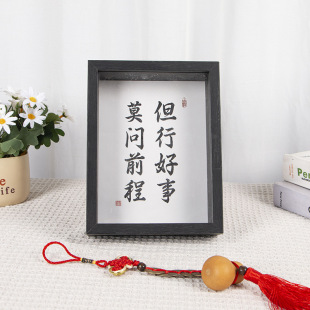 但行好事
莫问前程
Life